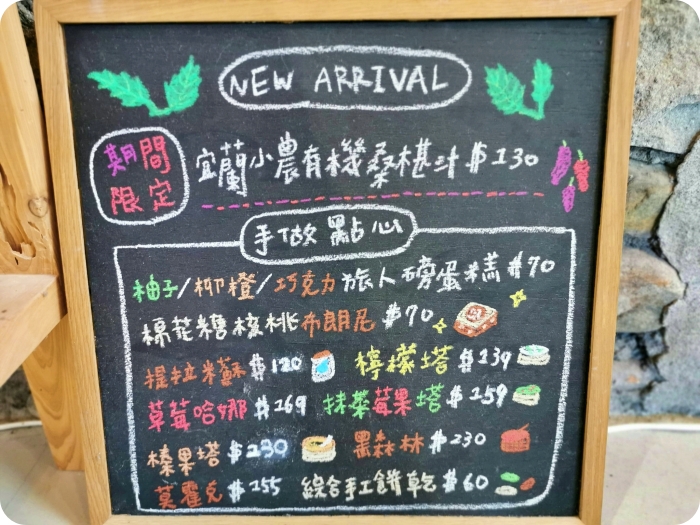 NEW ARRIVAL
期間限定
宜蘭小農有機桑椹汁 $130
手做點心
柚子/柳橙/巧克力旅人磅蛋糕 $70
棉花糖核桃布朗尼 $70
提拉米蘇 $120 檸檬塔 $139
草莓哈娜 $169 抹茶莓果塔 $159
榛果塔 $230 黑森林 $230
莫霍克 $155 綜合手工餅乾 $60